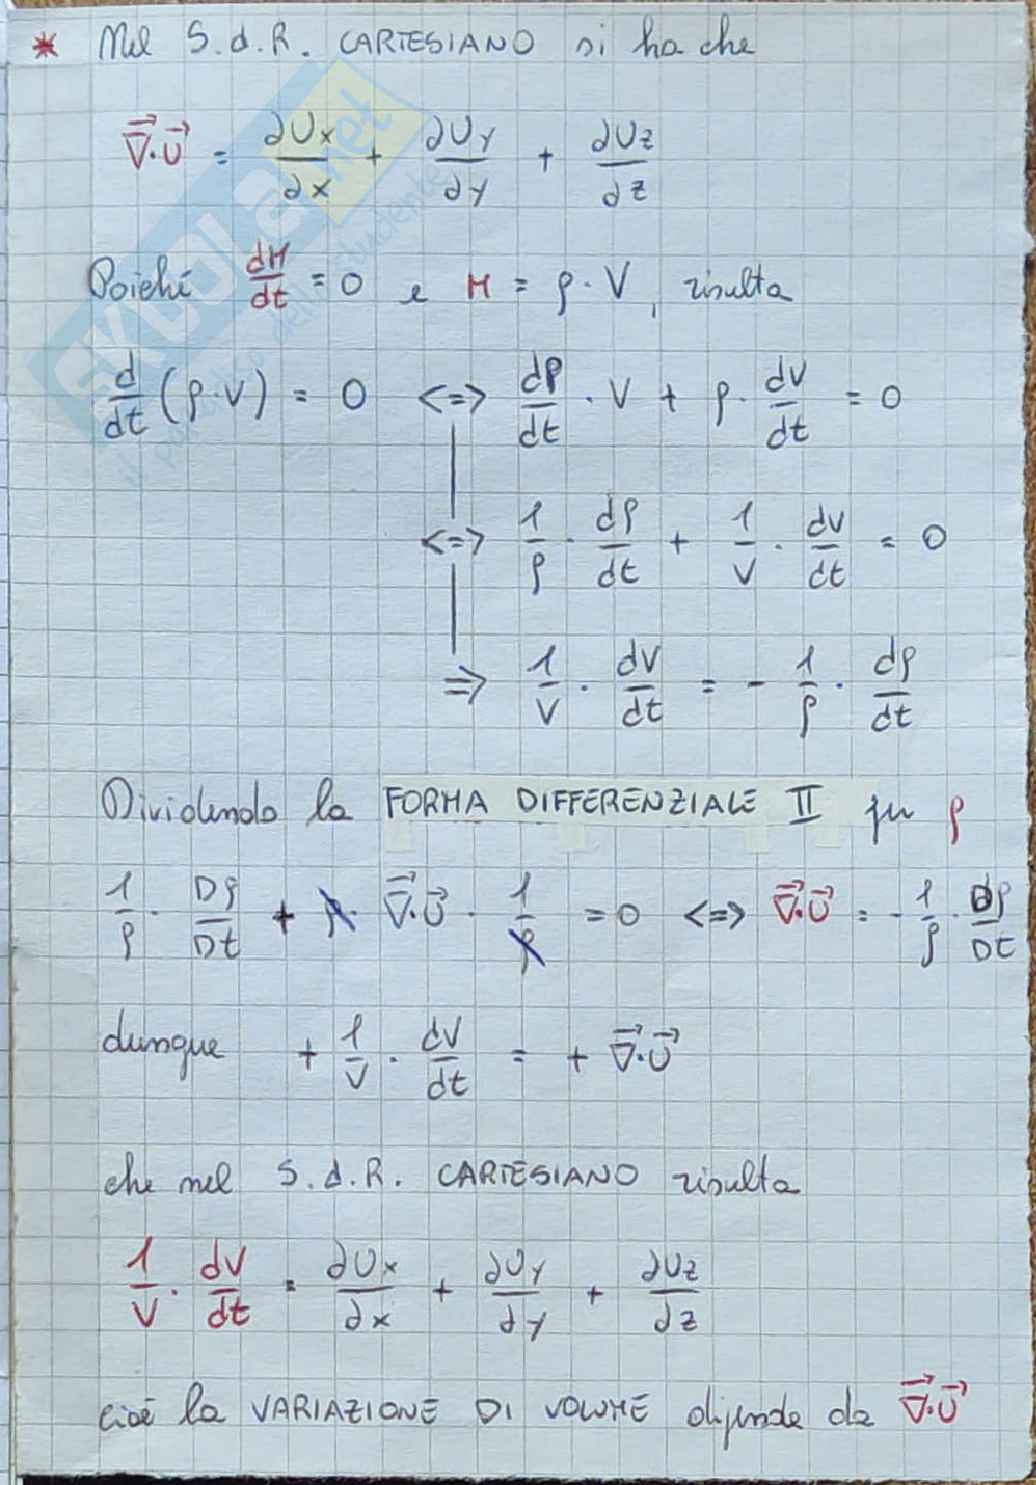 * Nel S.d.R. CARTESIANO si ha che
∇⃗·U⃗ = ∂Ux/∂x + ∂Uy/∂y + ∂Uz/∂z
Poiché dM/dt = 0 e M = ρ·V, risulta
d/dt (ρ·V) = 0 <=> dρ/dt · V + ρ · dV/dt = 0
<=> 1/ρ · dρ/dt + 1/V · dV/dt = 0
=> 1/V · dV/dt = - 1/ρ · dρ/dt
Dividendo la FORMA DIFFERENZIALE II per ρ
1/ρ · Dρ/Dt + ρ · ∇⃗·U⃗ · 1/ρ = 0 <=> ∇⃗·U⃗ = - 1/ρ · Dρ/Dt
dunque + 1/V · dV/dt = + ∇⃗·U⃗
che nel S.d.R. CARTESIANO risulta
1/V · dV/dt = ∂Ux/∂x + ∂Uy/∂y + ∂Uz/∂z
cioè la VARIAZIONE DI VOLUME dipende da ∇⃗·U⃗
SKUOLA.net